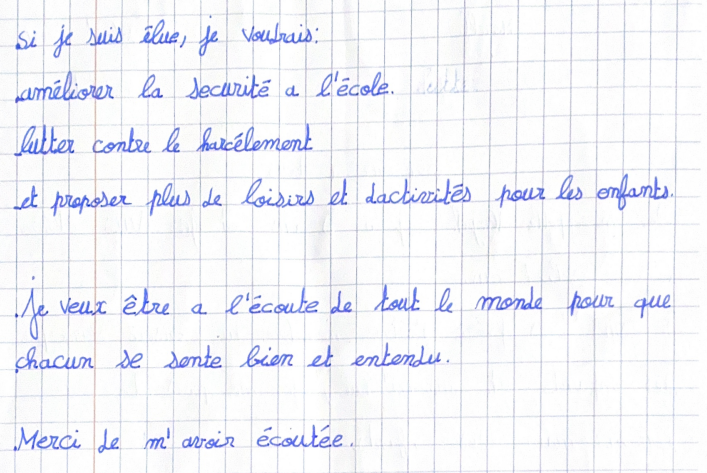 si je suis élue, je voudrais:
.améliorer la securité a l'école.
.lutter contre le harcélement
.et proposer plus de loisirs et dactivités pour les enfants.
.Je veux être a l'écoute de tout le monde pour que
chacun se sente bien et entendu.
.Merci de m'avoir écoutée.